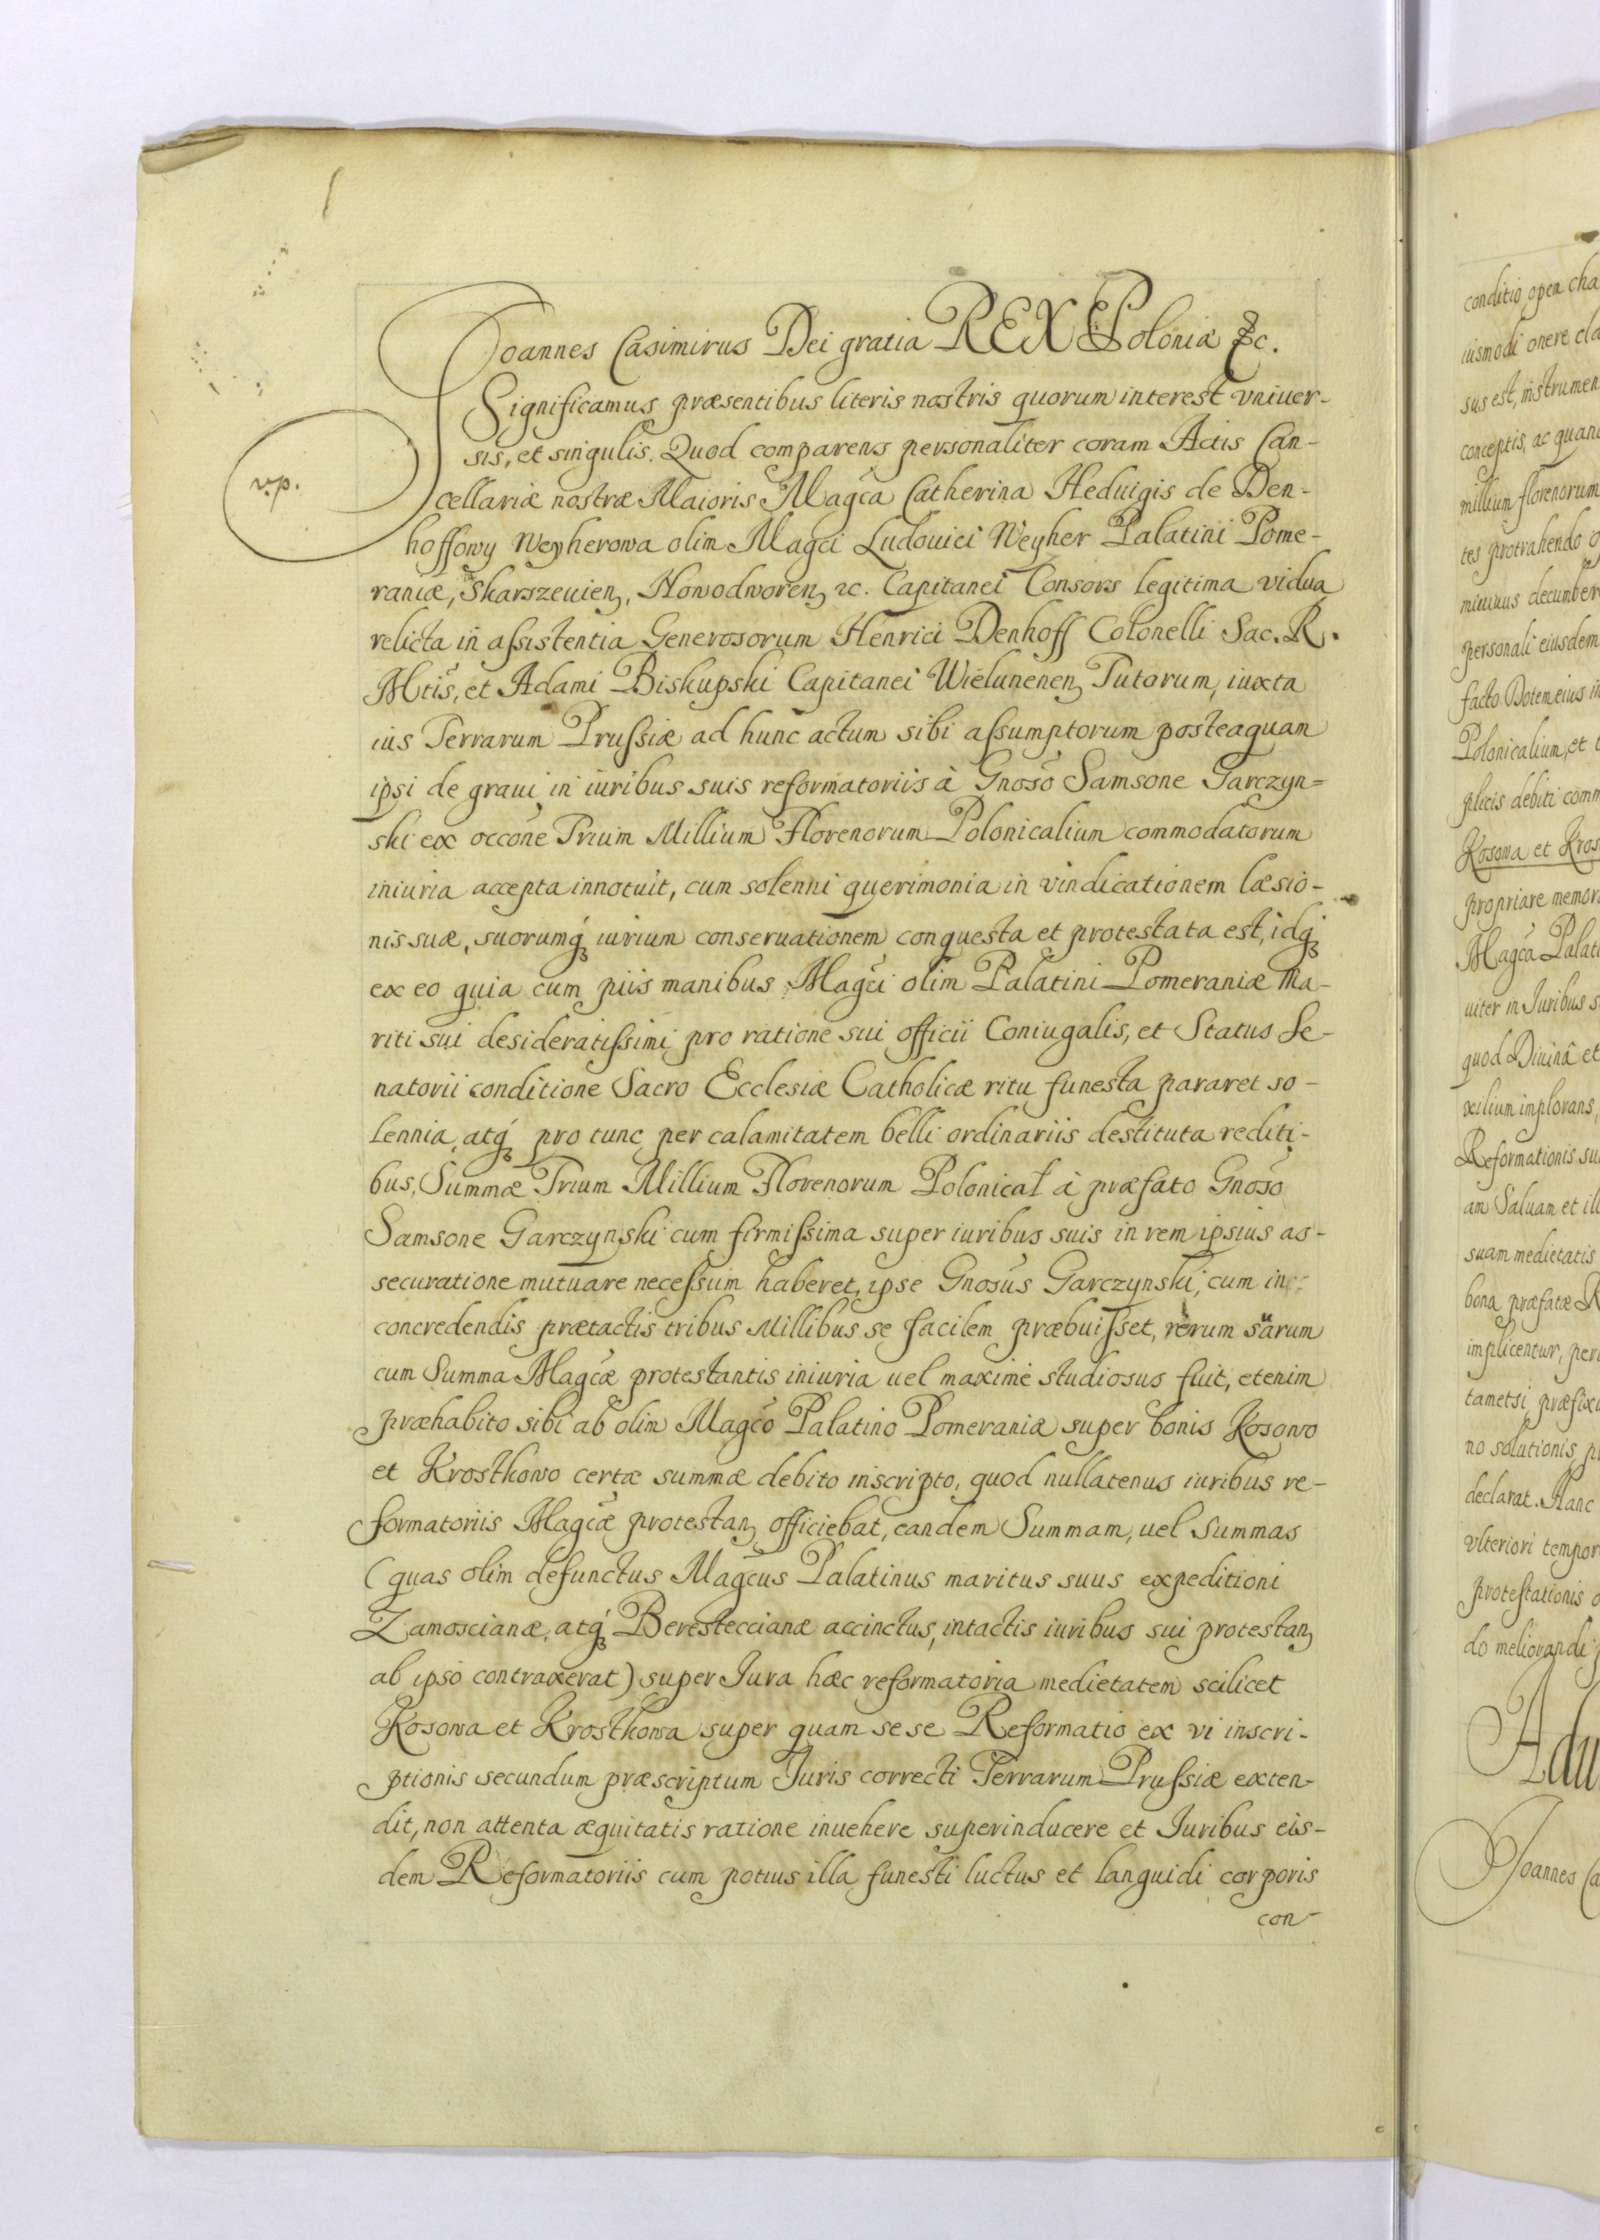 Joannes Casimirus Dei gratia REX Poloniæ &c.
Significamus præsentibus literis nostris quorum interest vniuer-
sis, et singulis. Quod comparens personaliter coram Actis Can-
v.p.
cellariæ nostræ Maioris Magca Catherina Heduigis de Den-
hoffowy Weyherowa olim Magci Ludouici Weyher Palatini Pome-
raniæ, Skarszeuien, Nowodworen, &c. Capitanei Consors legitima vidua
relicta in assistentia Generosorum Henrici Denhoff Colonelli Sac. R.
Mtis, et Adami Biskupski Capitanei Wielunenen, Tutorum, iuxta
ius Terrarum Prussiæ ad hunc actum sibi assumptorum posteaquam
ipsi de graui in iuribus suis reformatoriis à Gnoso Samsone Garczyn=
ski ex occone Trium Millium Florenorum Polonicalium commodatorum
iniuria accepta innotuit, cum solenni querimonia in vindicationem læsio-
nis suæ, suorumq iurium conseruationem conquesta et protestata est, idq
ex eo quia cum piis manibus Magci olim Palatini Pomeraniæ Ma-
riti sui desideratissimi pro ratione sui officii Coniugalis, et Status Se-
natorii conditione Sacro Ecclesiæ Catholicæ ritu funesta pararet so-
lennia, atq pro tunc per calamitatem belli ordinariis destituta rediti-
bus, Summæ Trium Millium Florenorum Polonical à præfato Gnoso
Samsone Garczynski cum firmissima super iuribus suis in rem ipsius as-
securatione mutuare necessum haberet, ipse Gnosus Garczynski, cum in
concredendis prætactis tribus Millibus se facilem præbuisset, rerum suarum
cum Summa Magcæ protestantis iniuria uel maximè studiosus fuit, etenim
præhabito sibi ab olim Magco Palatino Pomeraniæ super bonis Kosowo
et Krosthowo certæ summæ debito inscripto, quod nullatenus iuribus re-
formatoriis Magcæ protestan, officiebat, eandem Summam, uel Summas
(quas olim defunctus Magcus Palatinus maritus suus expeditioni
Zamoscianæ, atq Berestecciana accinctus, intactis iuribus sui protestan,
ab ipso contraxerat) super Jura hæc reformatoria medietatem scilicet
Kosowa et Krosthowa super quam sese Reformatio ex vi inscri-
ptionis secundum præscriptum Juris correcti Terrarum Prussiæ exten-
dit, non attenta æquitatis ratione inuehere superinducere et Juribus eis-
dem Reformatoriis cum potius illa funesti luctus et languidi corporis
con-
conditio open cha
iusmodi onere cla
sus est, instrumen
conceptis, ac quan
millium florenorum
tes protrahendo
minuus decumber
personali eiusdem
facto Dotem eius in
Polonicalium, et
plicis debiti comm
Kosowa et Kros
propriare memor
Magca Palat
uiter in Juribus s
quod Diuinâ et
xilium implorans,
Reformationis su
am Saluam et ill
suam medietatis
bona præfatæ R
implicentur, per
tametsi præfixi
no solutionis, p
declarat. Hanc
vlteriori tempor
protestationis
do meliorandi
Joannes Ca